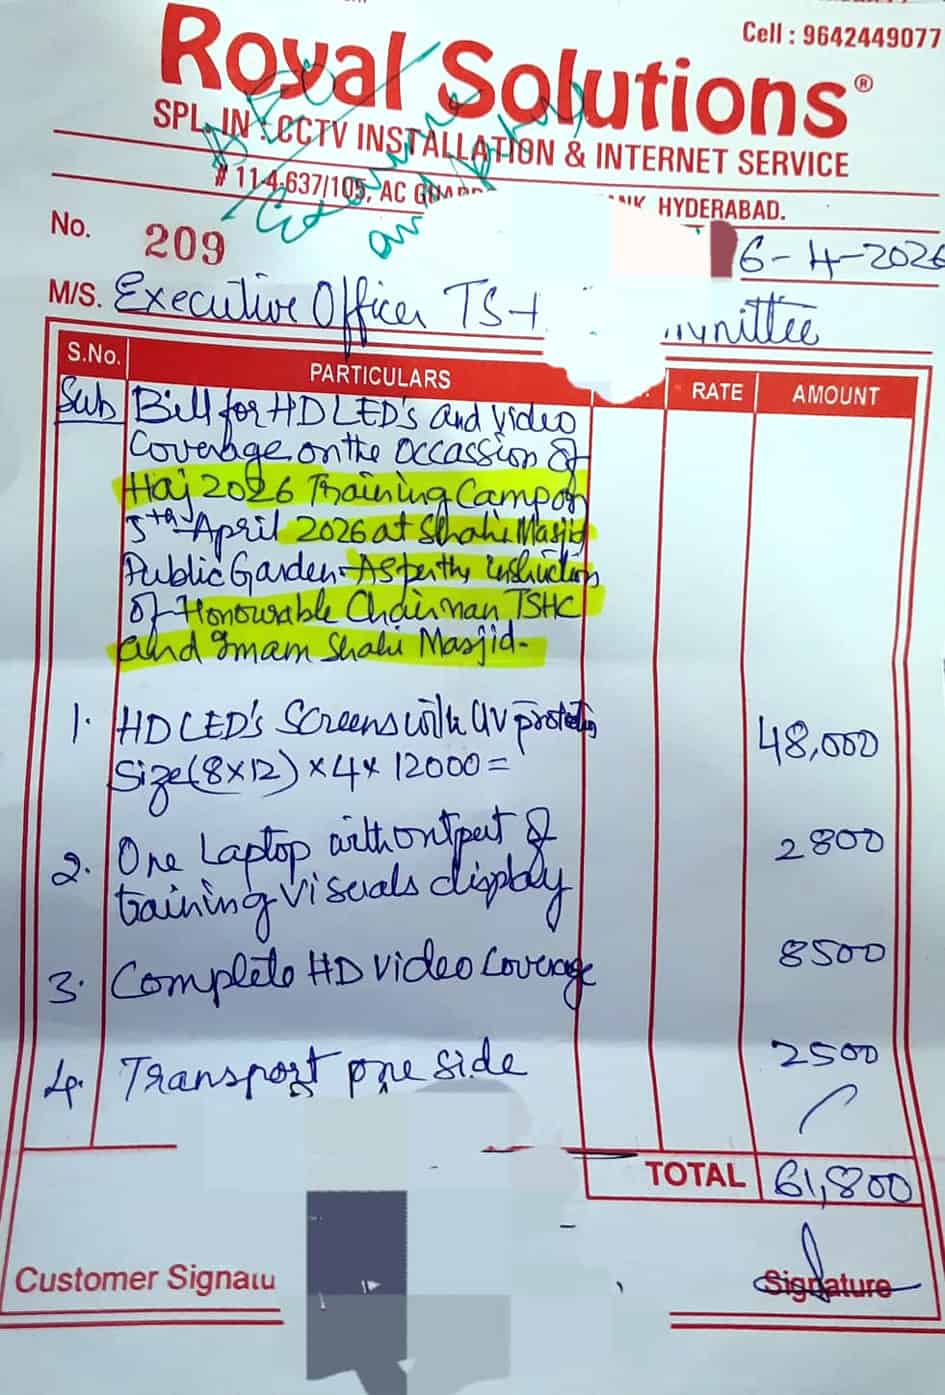 Cell : 9642449077
Royal Solutions®
SPL. IN : CCTV INSTALLATION & INTERNET SERVICE
# 11-4-637/105, AC HYDERABAD.
No. 209 6-4-2026
M/S. Executive Officer TS
S.No. PARTICULARS RATE AMOUNT
Sub Bill for HD LED's and video
Coverage on the Occassion of
Haj 2026 Training Camp on
5th April 2026 at Shahi Masjid
Public Garden - As per the instruction
of Honourable Chairman TSHC
and Imam Shahi Masjid -
1. HD LED's Screens with UV
Size (8x12) x 4 x 12000 = 48,000
2. One Laptop with output of 2800
training visuals display
3. Complete HD Video Coverage 8500
4. Transport one side 2500
TOTAL 61,800
Customer Signatu Signature